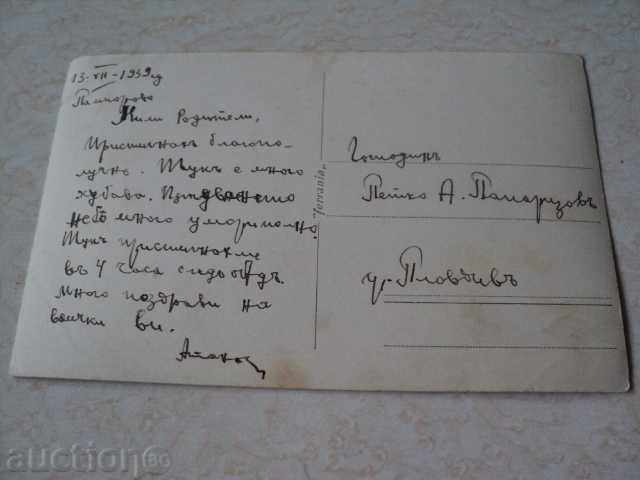 13-VII-1939 год
Пампорово
Мили Родители,
Пристигнахъ благопо-
лучно. Тукъ е много
хубаво. Пътуването
небѣ много уморително.
Тукъ пристигнахме
въ 4 часа следъ обѣдъ.
Много поздрави на
всички ви.
Атанас
Господинъ
Петко А. Панаризовъ
гр. Пловдивъ
"ferrania"
auction BG